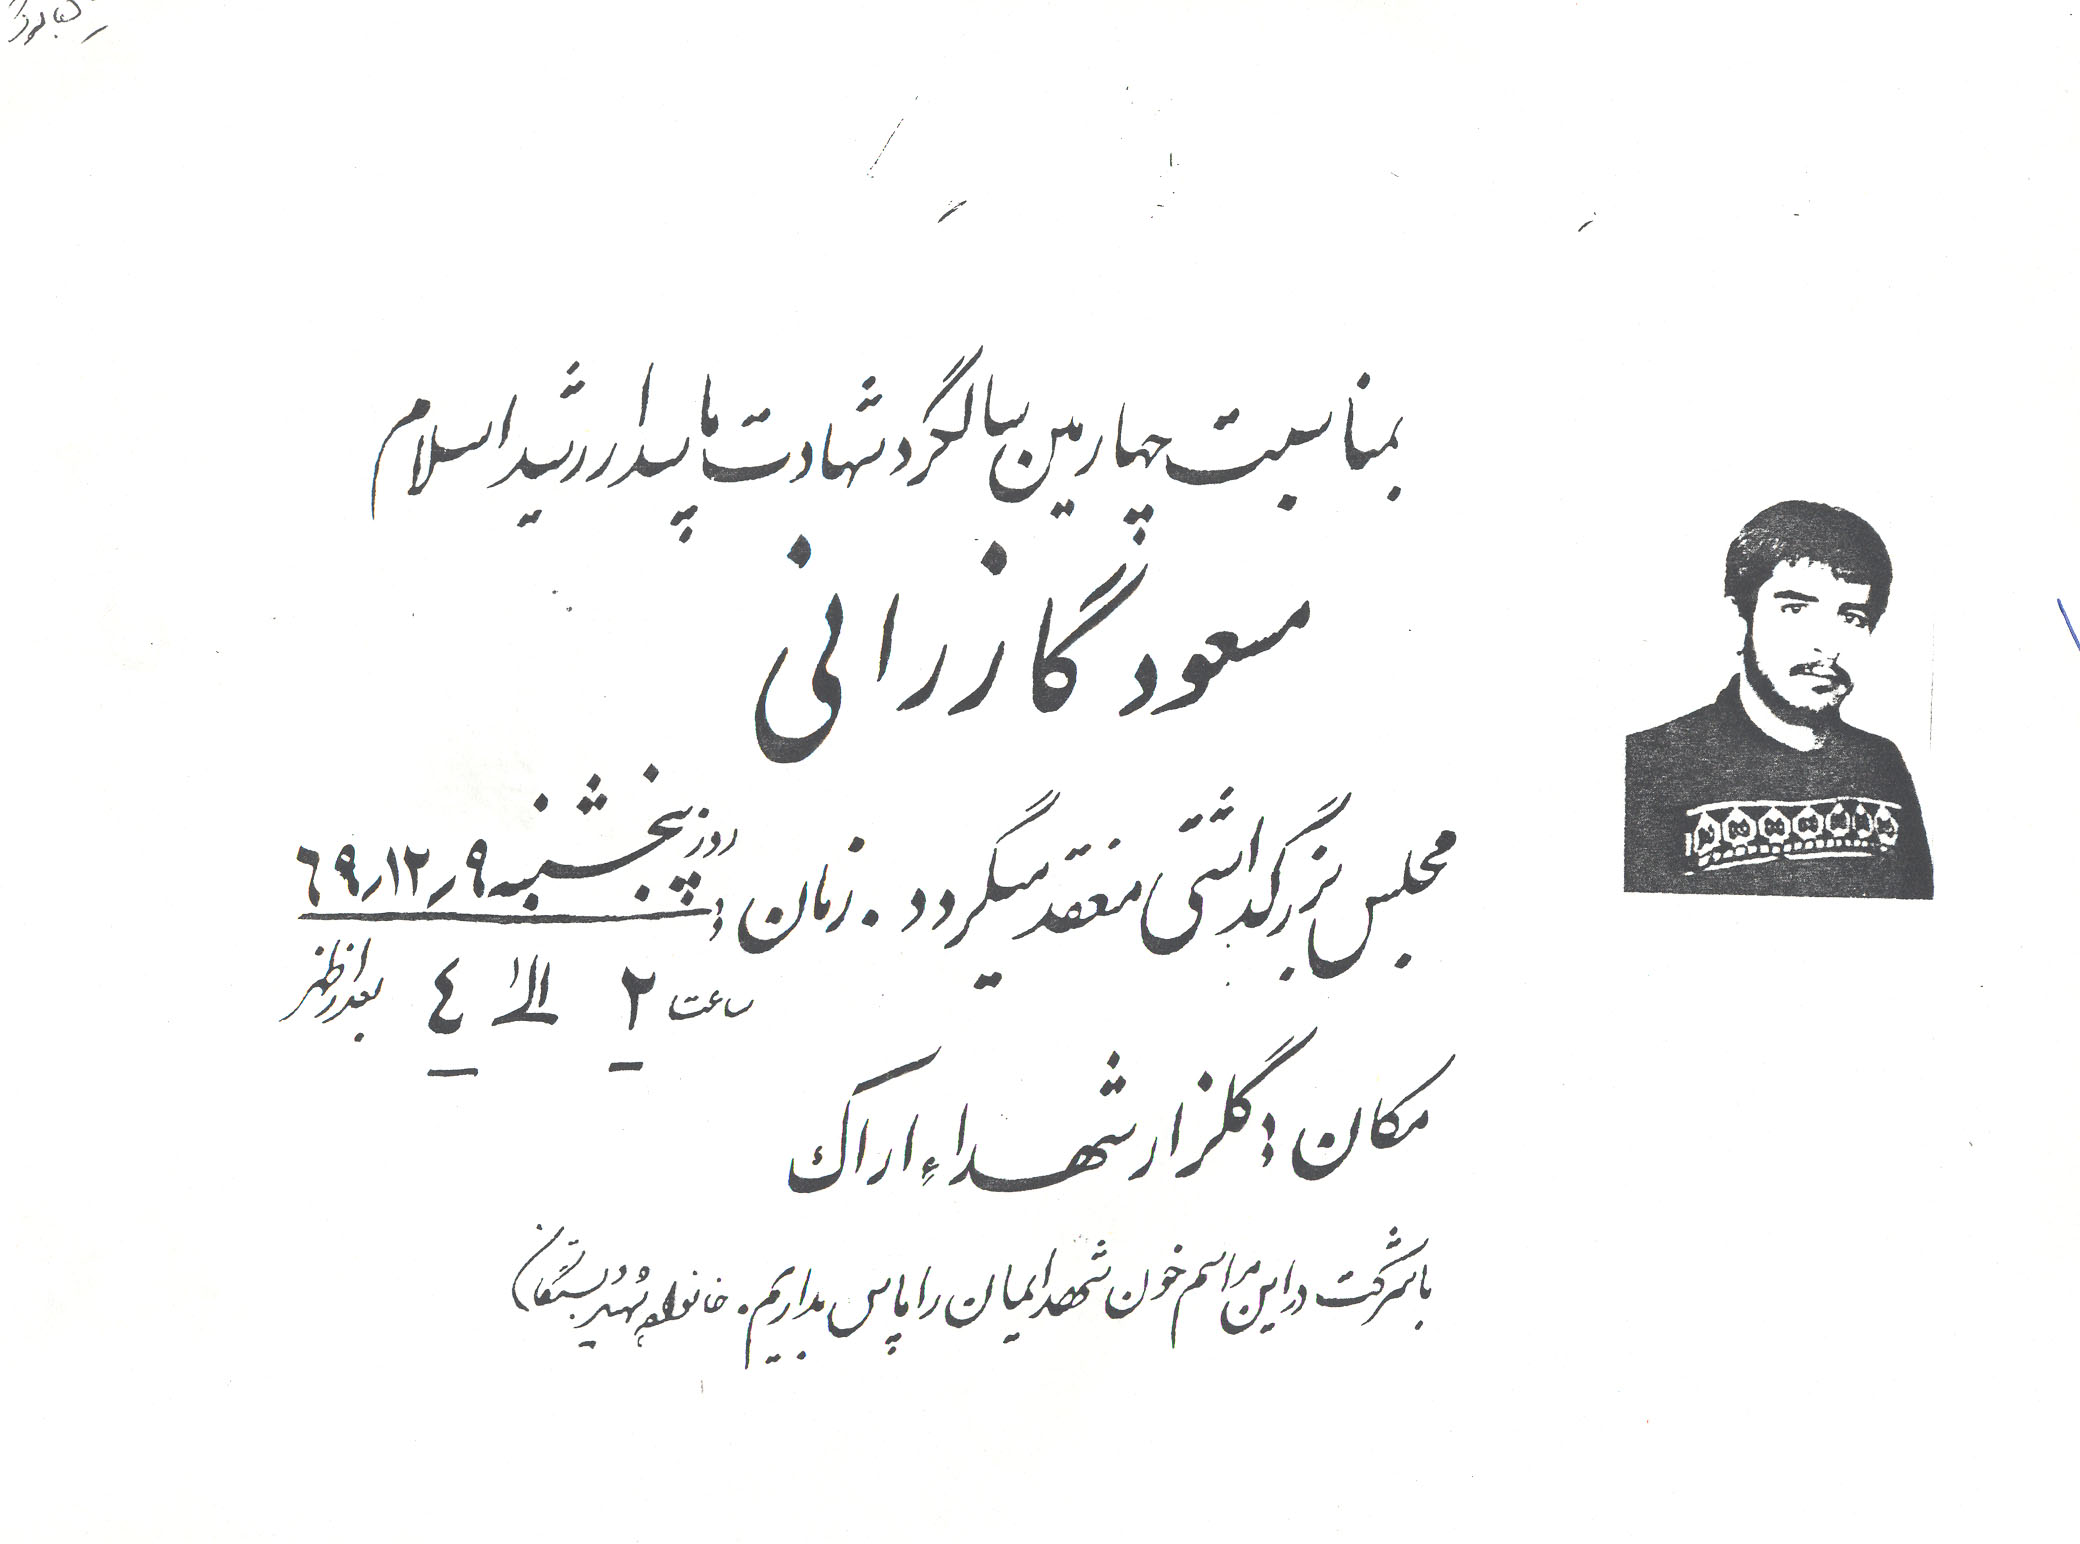 بمناسبت چهارمین سالگرد شهادت پاسدار رشید اسلام
مسعود گازرانی
مجلس بزرگداشتی منعقد میگردد. زمان: روز پنجشنبه ۶۹/۱۲/۹
ساعت ۲ الی ٤ بعد از ظهر
مکان: گلزار شهداء اراک
با شرکت در این مراسم خون شهدایمان را پاس بداریم. خانواده شهید و بستگان